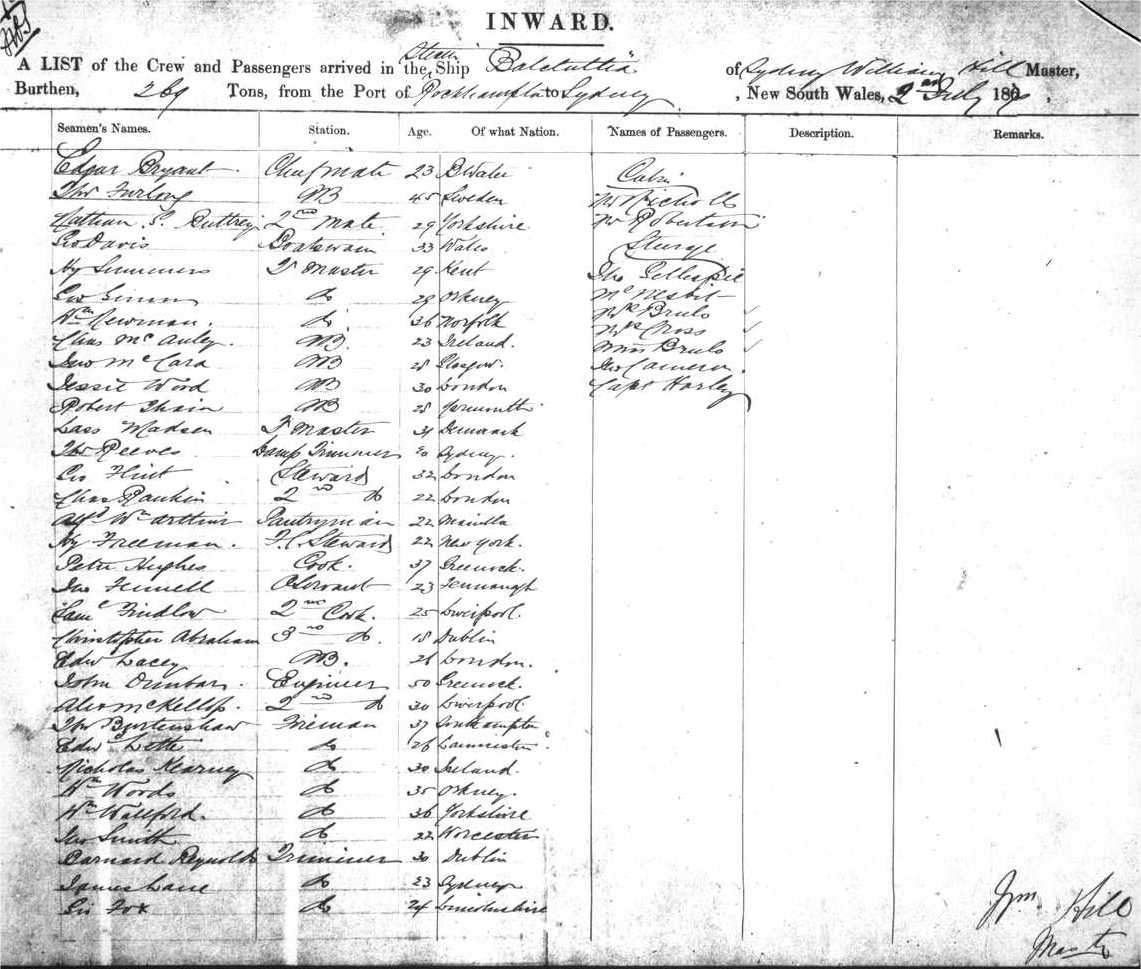 INWARD.
A LIST of the Crew and Passengers arrived in the Steam Ship "Balclutha" of Sydney William Hill Master,
Burthen, 269 Tons, from the Port of Rockhampton to Sydney, New South Wales, 2nd July 186
Seamen's Names. Station. Age. Of what Nation. Names of Passengers. Description. Remarks.
Edgar Bryant Chief Mate 23 Cabin
Thos Furlong AB 45 Sweden Mr Nicholls
Nathan S. Buttrey 2nd Mate 29 Yorkshire Mr Robertson
Geo Davis Boatswain 33 Wales Steerage
Hy Summers Master 29 Kent Jno Gellespie
Geo do 29 Orkney Nesbit
Wm Newman. do 36 Norfolk Mrs
Chas McAuley. AB. 23 Ireland. Mrs Cross
Jno McCara AB 28 Glasgow. Miss
Jessie Wood AB 30 London Jno Cameron.
Robert AB 28 Yarmouth Capt Harley
Lass Madsen Master 31 Denmark
Thos Reeves Lamp Trimmer 20 Sydney.
Geo Flint Steward 32 London
Chas Rankin 2nd do 22 London
Alfd Wm Arthur Pantryman 22 Manilla
Hy Freeman. F.C. Steward 22 New York.
Peter Hughes Cook. 37 Greenock.
Jno Fennell Servant 23
Saml Findlow 2nd Cook. 25 Liverpool.
Christopher Abraham 3rd do. 18 Dublin
Edw Lacey AB. 26 London.
John Dunbar. Engineer 50 Greenock.
Alex McKellop. 2nd do 30 Liverpool.
Thos Burtenshaw Fireman 37 Southampton
Edw do 26
Nicholas Kearney do 30 Ireland.
Wm Woods do 35 Orkney.
Wm Wallford. do 36 Yorkshire
Jno Smith do 22 Worcester
Barnard Reynolds Trimmer 30 Dublin
James Lane do 23 Sydney
Geo Fox do 24 Lincolnshire
Wm Hill
Master